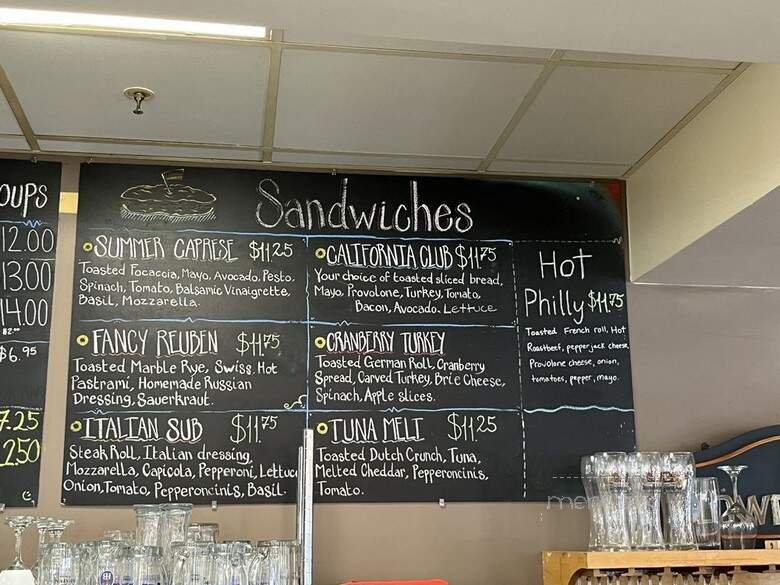 OUPS
12.00
13.00
14.00
$2.00
$6.95
7.25
2.50
Sandwiches
SUMMER CAPRESE $11.25
Toasted Focaccia, Mayo, Avocado, Pesto,
Spinach, Tomato, Balsamic Vinaigrette,
Basil, Mozzarella.
FANCY REUBEN $11.75
Toasted Marble Rye, Swiss, Hot
Pastrami, Homemade Russian
Dressing, Sauerkraut.
ITALIAN SUB $11.75
Steak Roll, Italian dressing,
Mozzarella, Capicola, Pepperoni, Lettuce
Onion, Tomato, Pepperoncinis, Basil.
CALIFORNIA CLUB $11.75
Your choice of toasted sliced bread,
Mayo, Provolone, Turkey, Tomato,
Bacon, Avocado, Lettuce
CRANBERRY TURKEY
Toasted German Roll, Cranberry
Spread, Carved Turkey, Brie Cheese,
Spinach, Apple slices.
TUNA MELT $11.25
Toasted Dutch Crunch, Tuna,
Melted Cheddar, Pepperoncinis,
Tomato.
Hot
Philly $11.75
Toasted French roll, Hot
Roastbeef, pepper jack cheese,
Provolone cheese, onion,
tomatoes, pepper, mayo.